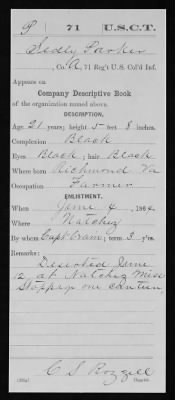 P 71 U.S.C.T.
Sedly Parker
, Co. A, 71 Reg't U.S. Col'd Inf.
Appears on
Company Descriptive Book
of the organization named above.
DESCRIPTION.
Age 21 years; height 5 feet 8 inches.
Complexion Black
Eyes Black; hair Black
Where born Richmond Va
Occupation Farmer
ENLISTMENT.
When June 4, 1864.
Where Natchez
By whom Capt Oram; term 3 y'rs.
Remarks:
Deserted June
12 at Natchez Miss
Stoppage one canteen.
C S Bozzell
Copyist.